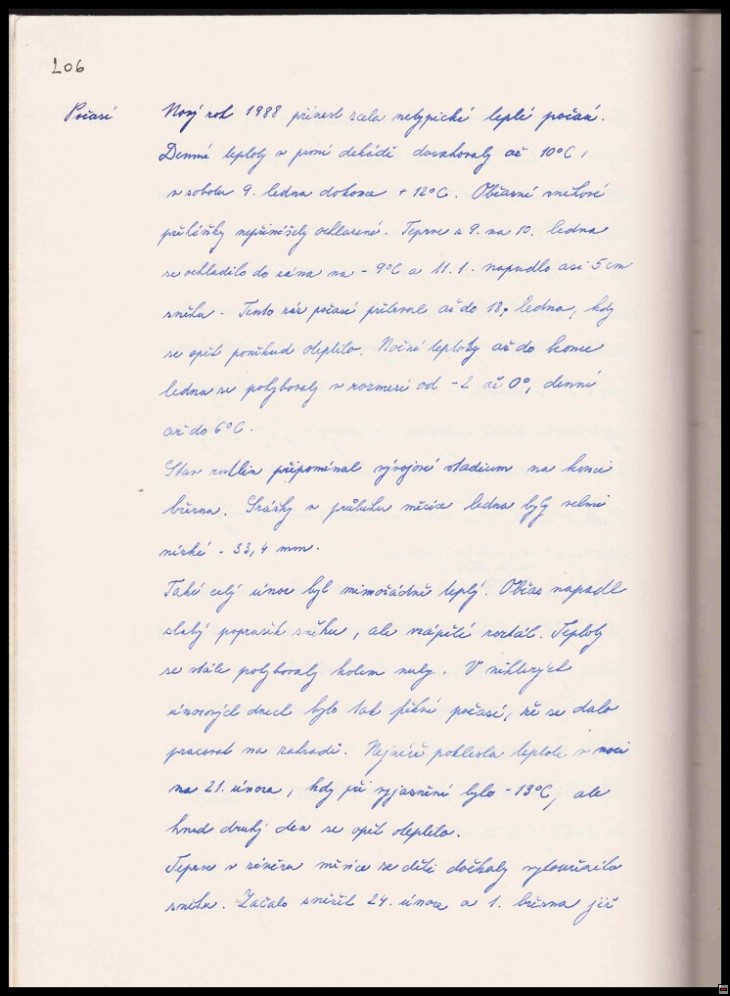 206
Počasí Nový rok 1988 přinesl zcela netypické teplé počasí.
Denní teploty v první dekádě dosahovaly až 10°C,
v sobotu 9. ledna dokonce + 12°C. Občasné sněhové
přeháňky nepřinášely ochlazení. Teprve z 9. na 10. ledna
se ochladilo do rána na - 9°C a 11.1. napadlo asi 5 cm
sněhu. Tento ráz počasí přetrval až do 18. ledna, kdy
se opět poněkud oteplilo. Noční teploty až do konce
ledna se pohybovaly v rozmezí od -2 až 0°, denní
až do 6°C.
Stav rostlin připomínal vývojové stadium na konci
března. Srážky v průběhu měsíce ledna byly velmi
nízké - 33,4 mm.
Také celý únor byl mimořádně teplý. Občas napadl
slabý poprašek sněhu, ale vzápětí roztál. Teploty
se stále pohybovaly kolem nuly. V některých
únorových dnech bylo tak pěkné počasí, že se dalo
pracovat na zahradě. Nejníže poklesla teplota v noci
na 21. února, kdy při vyjasnění bylo -13°C, ale
hned druhý den se opět oteplilo.
Teprve v závěru měsíce se děti dočkaly vytouženého
sněhu. Začalo sněžit 24. února a 1. března již